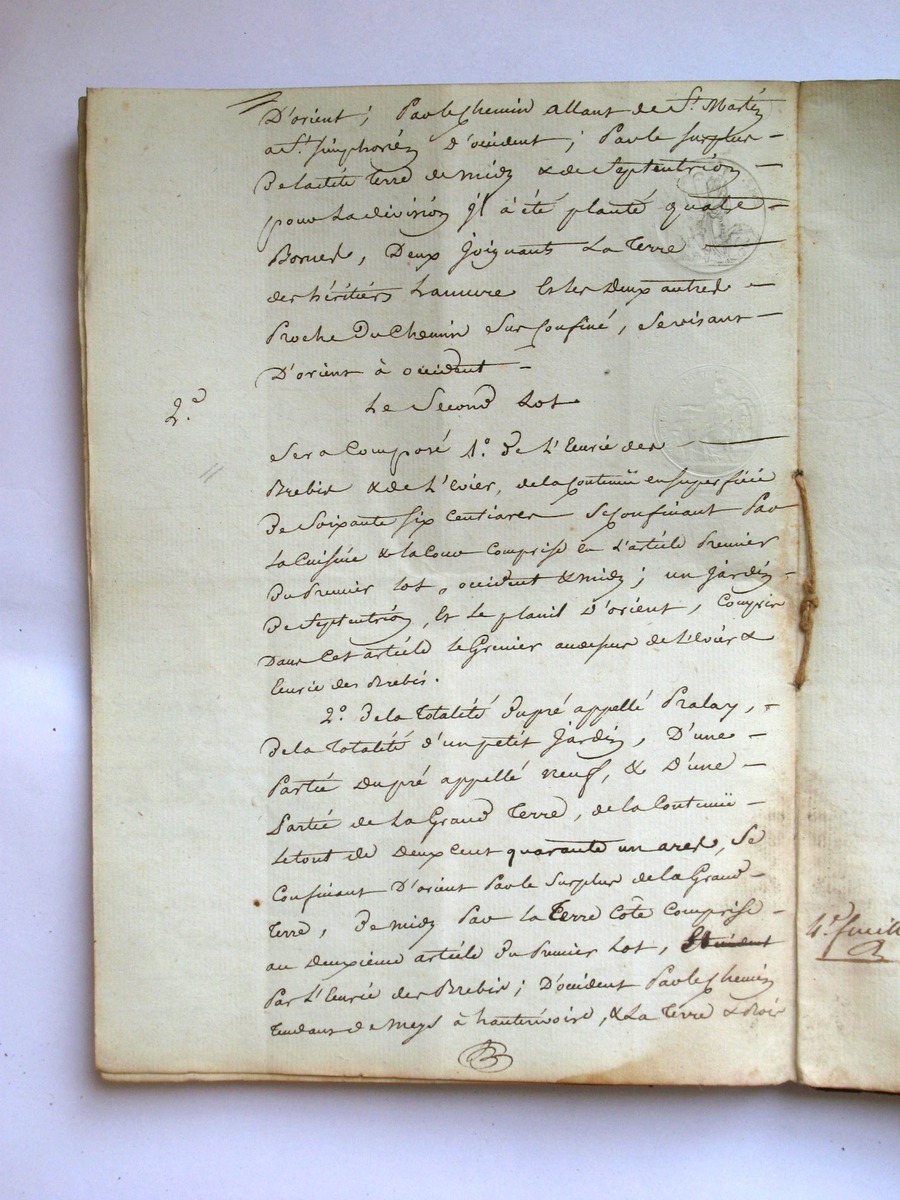 D'orient ; Par le Chemin allant de St Martin
a St Simphorien D'occident ; Par le surplus
De ladite terre de midy & de Septentrion
pour La division il à été planté quatre
Bornes, Deux joignants La Terre
des héritiers Et les Deux autres
Proche Du Chemin Sus Confiné, se visant
D'orient à occident
2.e
Le Second Lot
Sera Composé 1.o De L'Eurie des
Brebis & de L'Evier, de la Contenüe en superficie
De Soixante six Centiares Se Confinant Par
La Cuisine & la Cour Comprise en L'article Premier
Du Premier Lot, occident & midy ; un jardin
De Septentrion, Et Le D'orient, Compris
Dans Cet article Le Grenier audessus de L'evier &
Eurie des Brebis.
2.o De la Totalité Du pré appellé Pralay,
De la totalité d'un petit jardin, D'une
Partie Du pré appellé neuf, & D'une
Partie de La Grand Terre, de la Contenüe
Le tout de Deux Cent quarante un ares, Se
Confinant D'orient Par le Surplus de la Grand
Terre, De midy Par la Terre Côte Comprise
au Deuxième article Du Premier Lot,
Par L'Eurie des Brebis ; D'occident Par le Chemin
Tendant de Meys à hauterivoire, & La Terre & Bois
4.e feuille